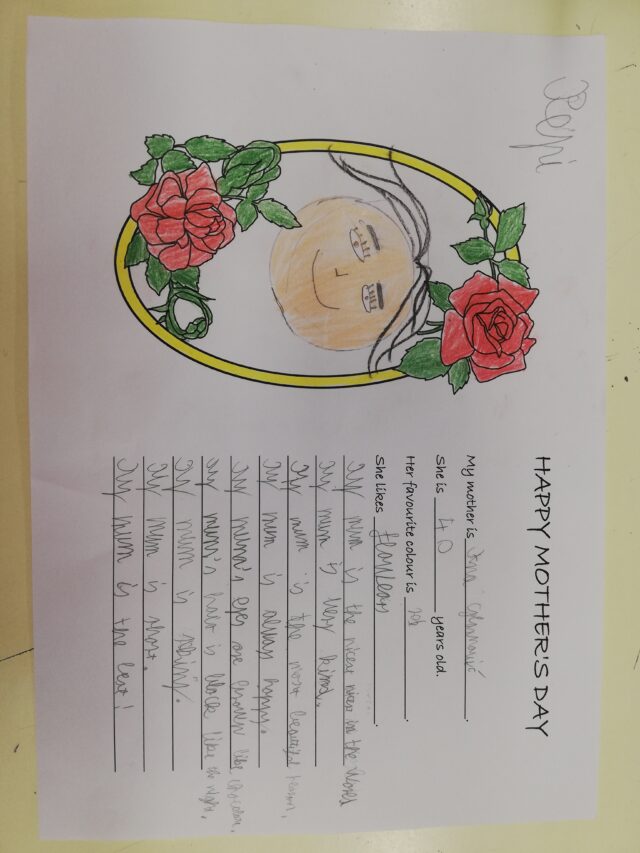 Repi
HAPPY MOTHER'S DAY
My mother is
She is 40 years old.
Her favourite colour is
She likes flowers
My mum is the nicest mum in the world
My mum is very kind.
My mum is the most beautiful
My mum is always happy.
My mum's eyes are brown like chocolate.
My mum's hair is black like the night.
My mum is
My mum is short.
My mum is the best!